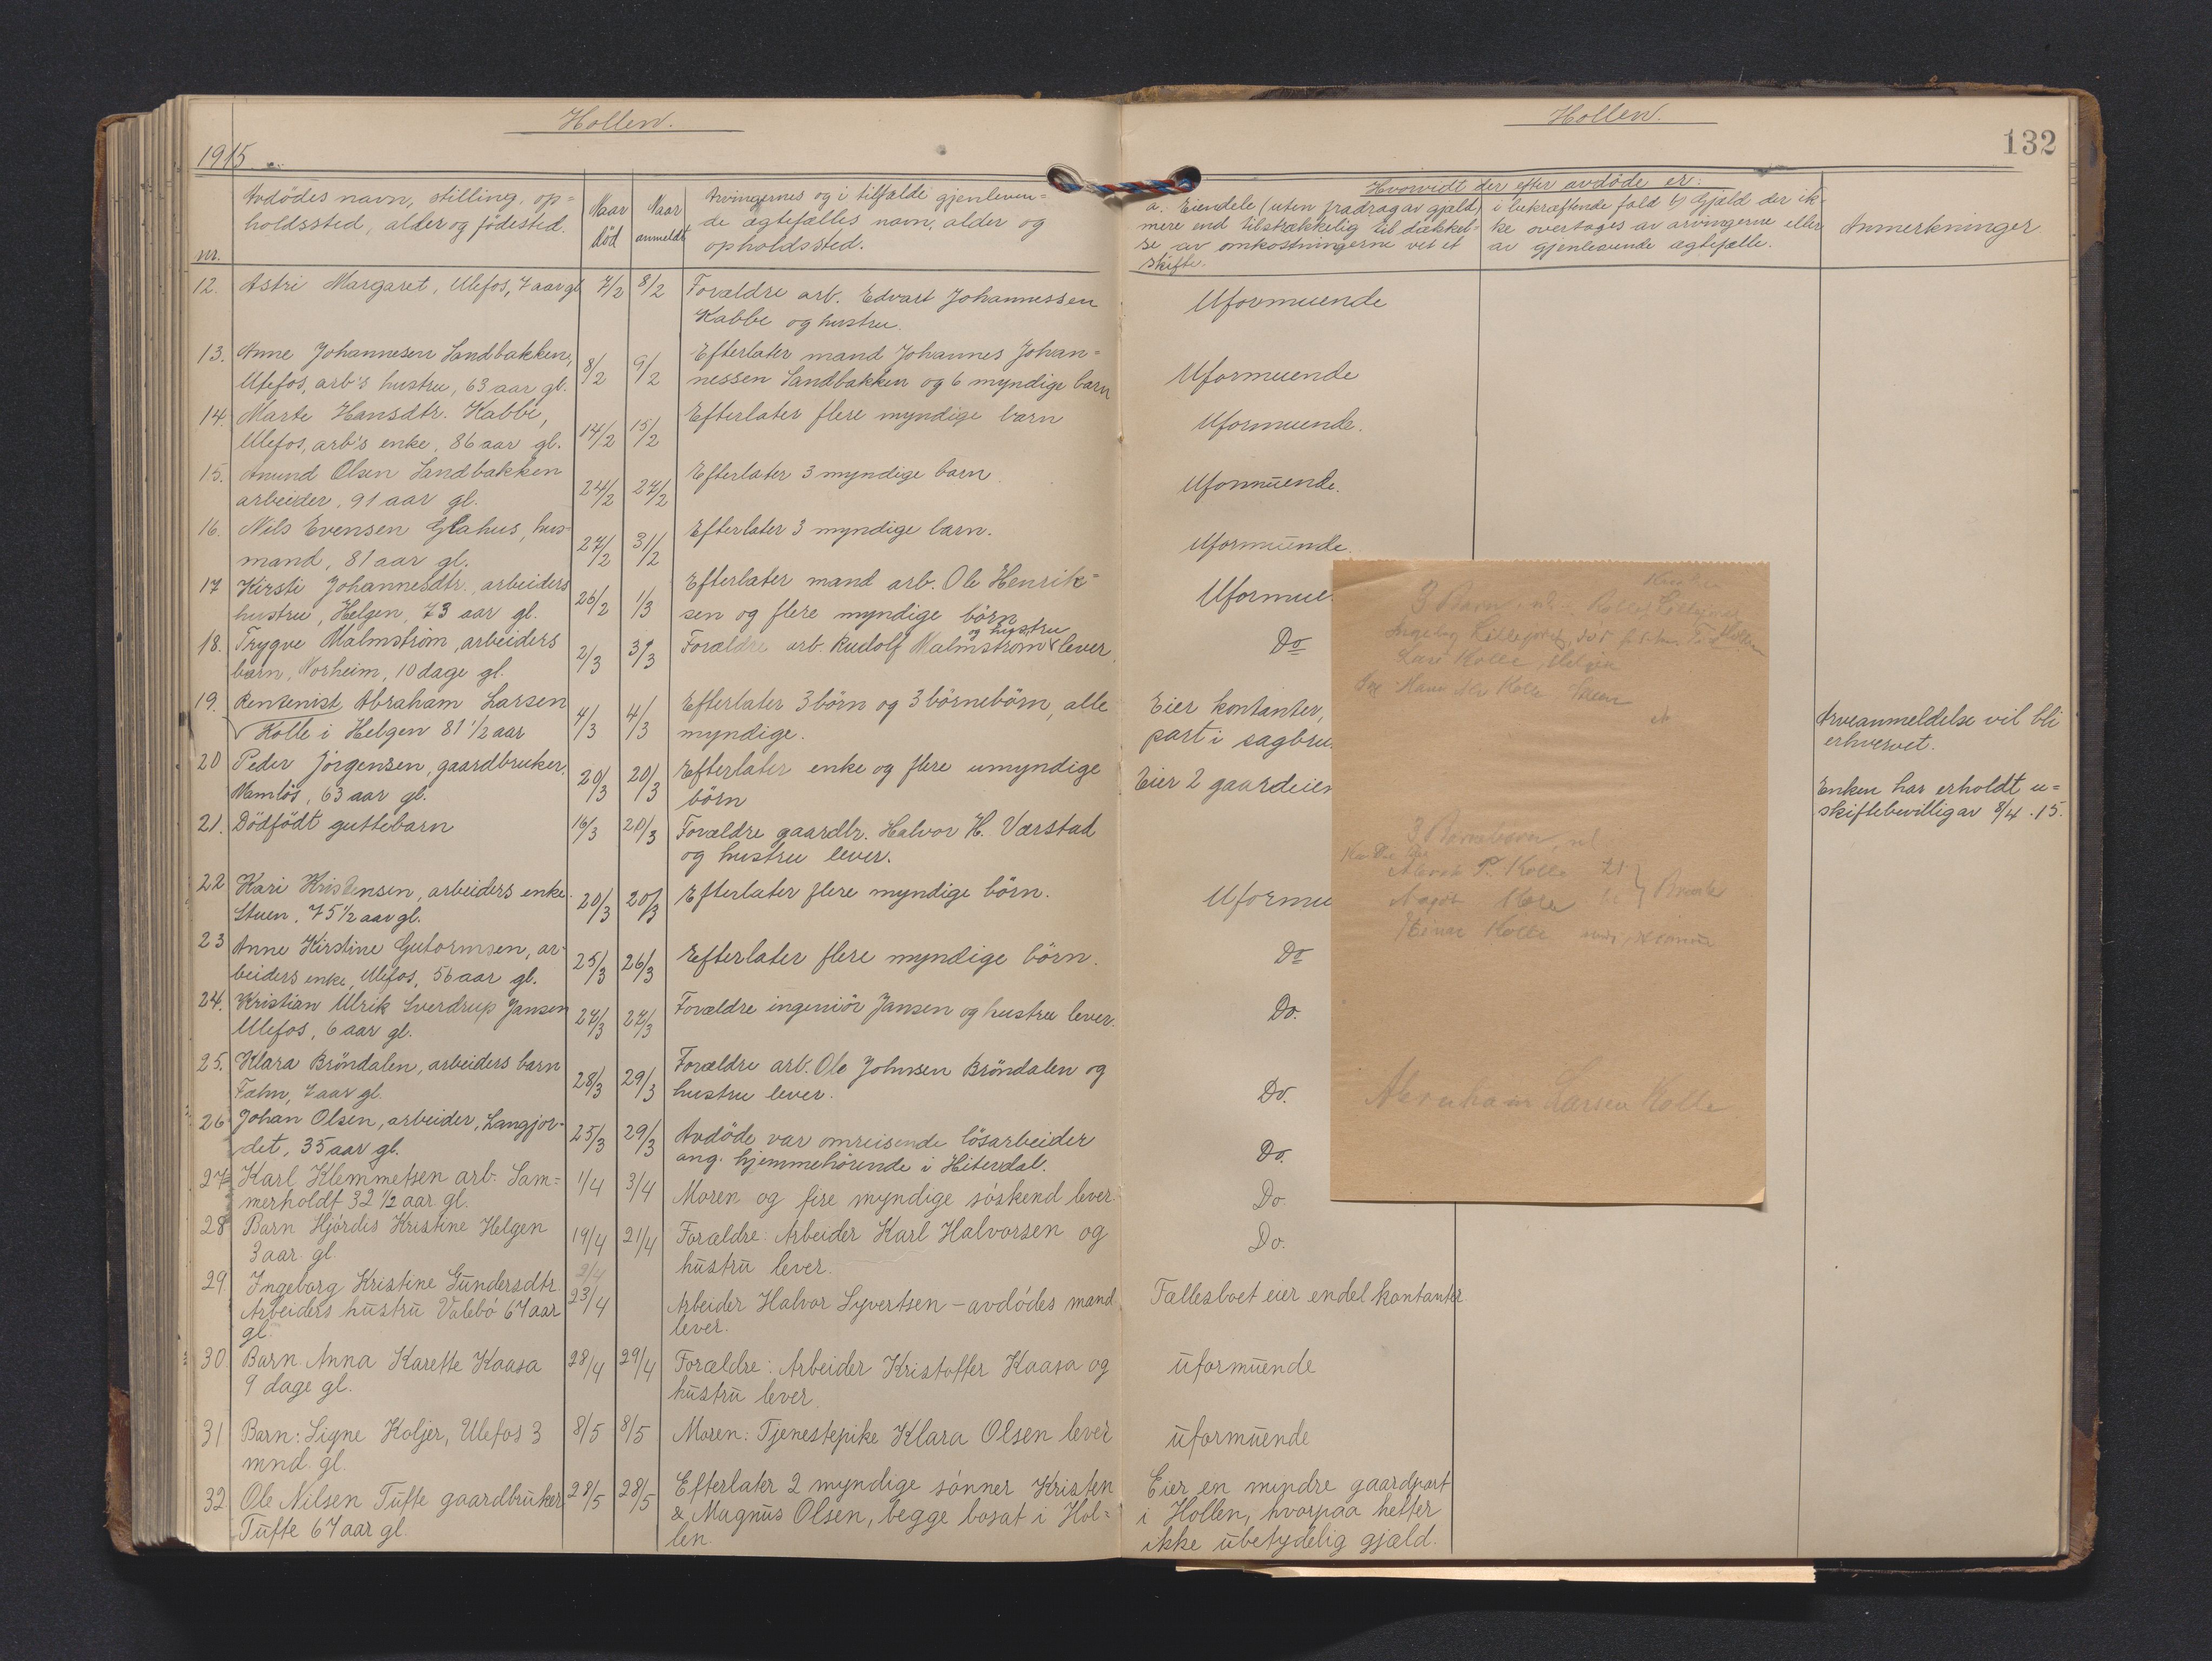 Hollen.
1915
nr.
Avdödes navn, stilling, op=
holdssted, alder og födested.
Naar
död
Naar
anmeldt
Arvingernes og i tilfælde gjenleven=
de ægtefælles navn, alder og
opholdssted.
12. Astri Margaret, Ulefos, 7 aar gl 7/2 8/2 Forældre arb. Edvart Johannessen
Kabbe og hustru.
13. Anne Johannesen Sandbakken,
Ulefos, arb's hustru, 63 aar gl. 8/2 9/2 Efterlater mand Johannes Johan=
nessen Sandbakken og 6 myndige barn
14. Marte Hansdtr. Kabbe,
Ulefos, arb's enke, 86 aar gl. 14/2 15/2 Efterlater flere myndige barn
15. Anund Olsen Sandbakken
arbeider, 91 aar gl. 24/2 27/2 Efterlater 3 myndige barn.
16. Nils Evensen Glahus, hus=
mand, 81 aar gl. 27/2 31/2 Efterlater 3 myndige barn.
17 Kirsti Johannesdtr. arbeiders
hustru, Helgen, 73 aar gl. 26/2 1/3 Efterlater mand arb. Ole Henrik=
sen og flere myndige börn
18. Trygve Malmström, arbeiders
barn, Norheim, 10 dage gl. 2/3 3/3 Forældre arb. Rudolf Malmström og hustru lever.
19. Rentenist Abraham Larsen
Kolle i Helgen 81 1/2 aar 4/3 4/3 Efterlater 3 börn og 3 börnebörn, alle
myndige.
20 Peder Jörgensen, gaardbruker,
Namlös, 63 aar gl. 20/3 20/3 Efterlater enke og flere umyndige
börn
21. Dödfödt guttebarn 16/3 20/3 Forældre gaardbr. Halvor H. Værstad
og hustru lever.
22 Kari Kristensen, arbeiders enke
Stuen, 75 1/2 aar gl. 20/3 20/3 Efterlater flere myndige börn.
23 Anne Kirstine Gutormsen, ar=
beiders enke, Ulefos, 56 aar gl. 25/3 26/3 Efterlater flere myndige börn.
24. Kristian Ulrik Sverdrup Jansen
Ulefos, 6 aar gl. 27/3 27/3 Forældre ingeniör Jansen og hustru lever.
25. Klara Bröndalen, arbeiders barn
Fahn, 7 aar gl. 28/3 29/3 Forældre arb. Ole Johnsen Bröndalen og
hustru lever.
26 Johan Olsen, arbeider, Langjor=
det, 35 aar gl. 25/3 29/3 Avdöde var omreisende lösarbeider
ang. hjemmehörende i Hiterdal.
27 Karl Klemmetsen arb. Sam=
merholdt 32 1/2 aar gl. 1/4 3/4 Moren og fire myndige söskend lever.
28 Barn Hjördis Kristine Helgen
3 aar gl. 19/4 21/4 Forældre: Arbeider Karl Halvorsen og
hustru lever.
29 Ingeborg Kristine Gundersdtr.
Arbeiders hustru Valebö 67 aar
gl. 23/4 Arbeider Halvor Syvertsen – avdödes mand
lever.
30. Barn Anna Karette Kaasa
9 dage gl. 28/4 29/4 Forældre: Arbeider Kristoffer Kaasa og
hustru lever.
31 Barn: Signe Koljer, Ulefos 3
mnd. gl. 8/5 8/5 Moren: Tjenestepike Klara Olsen lever
32 Ole Nilsen Tufte gaardbruker
Tufte 67 aar gl. 28/5 28/5 Efterlater 2 myndige sönner Kristen
& Magnus Olsen, begge bosat i Hol=
len.
Hollen.
132
Hvorvidt der efter avdöde er:
a. Eiendele (uten fradrag av gjæld)
mere end tilstrækkelig til dækkel=
se av omkostningerne ved et
skifte.
i bekræftende fald b) Gjæld der ik=
ke overtages av arvingerne eller
av gjenlevende ægtefælle.
Anmerkninger
Uformuende
Uformuende
Uformuende.
Uformuende.
Uformuende.
Uformue
Do
Eier kontanter,
part i sagbru
Arveanmeldelse vil bli
erhvervet.
Eier 2 gaardeien
Enken har erholdt u=
skiftebevilling av 8/4 .15.
Uformu
Do
Do.
Do.
Do.
Do.
Do.
Fællesboet eier endel kontanter.
uformuende
uformuende
Eier en mindre gaardpart
i Hollen, hvorpaa hefter
ikke ubetydelig gjæld.
3 Barn
Kolle
3 Barnebarn
Kolle
Kolle
Kolle
Abraham Larsen Kolle